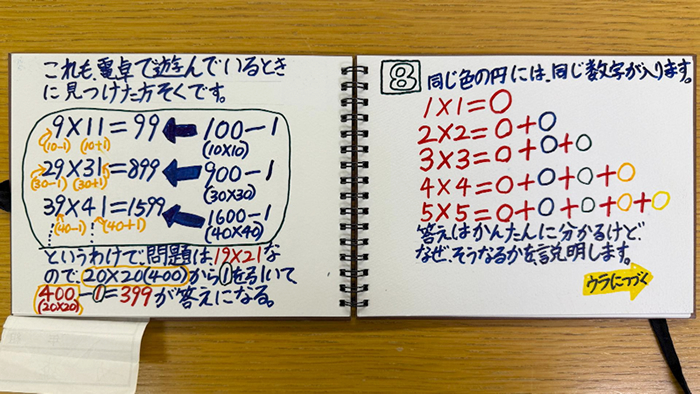 これも、電卓で遊んでいるとき
に見つけた方そくです。
9×11=99 ← 100-1
(10-1) (10+1) (10×10)
29×31=899 ← 900-1
(30-1) (30+1) (30×30)
39×41=1599 ← 1600-1
(40-1) (40+1) (40×40)
というわけで、問題は、19×21な
ので、20×20(400)から①を引いて
400-①=399が答えになる。
(20×20)
8 同じ色の円には、同じ数字が入ります。
1×1=○
2×2=○+○
3×3=○+○+○
4×4=○+○+○+○
5×5=○+○+○+○+○
答えはかんたんに分かるけど、
なぜ、そうなるかを、説明します。
ウラにつづく